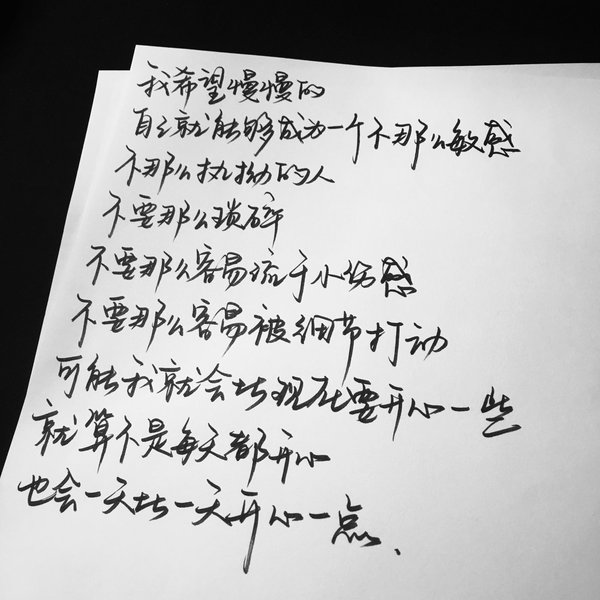 我希望慢慢的
自己就能够成为一个不那么敏感
不那么执拗的人
不要那么琐碎
不要那么容易流于小伤感
不要那么容易被细节打动
可能我就会比现在要开心一些
就算不是每天都开心
也会一天比一天开心一点、